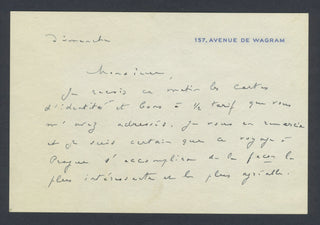 Dimanche
157, AVENUE DE WAGRAM
Monsieur,
Je reçois ce matin les cartes
d'identité et bons à ½ tarif que vous
m'avez adressés. Je vous en remercie
et je suis certain que ce voyage à
Prague s'accomplira de la façon la
plus intéressante et la plus agréable.